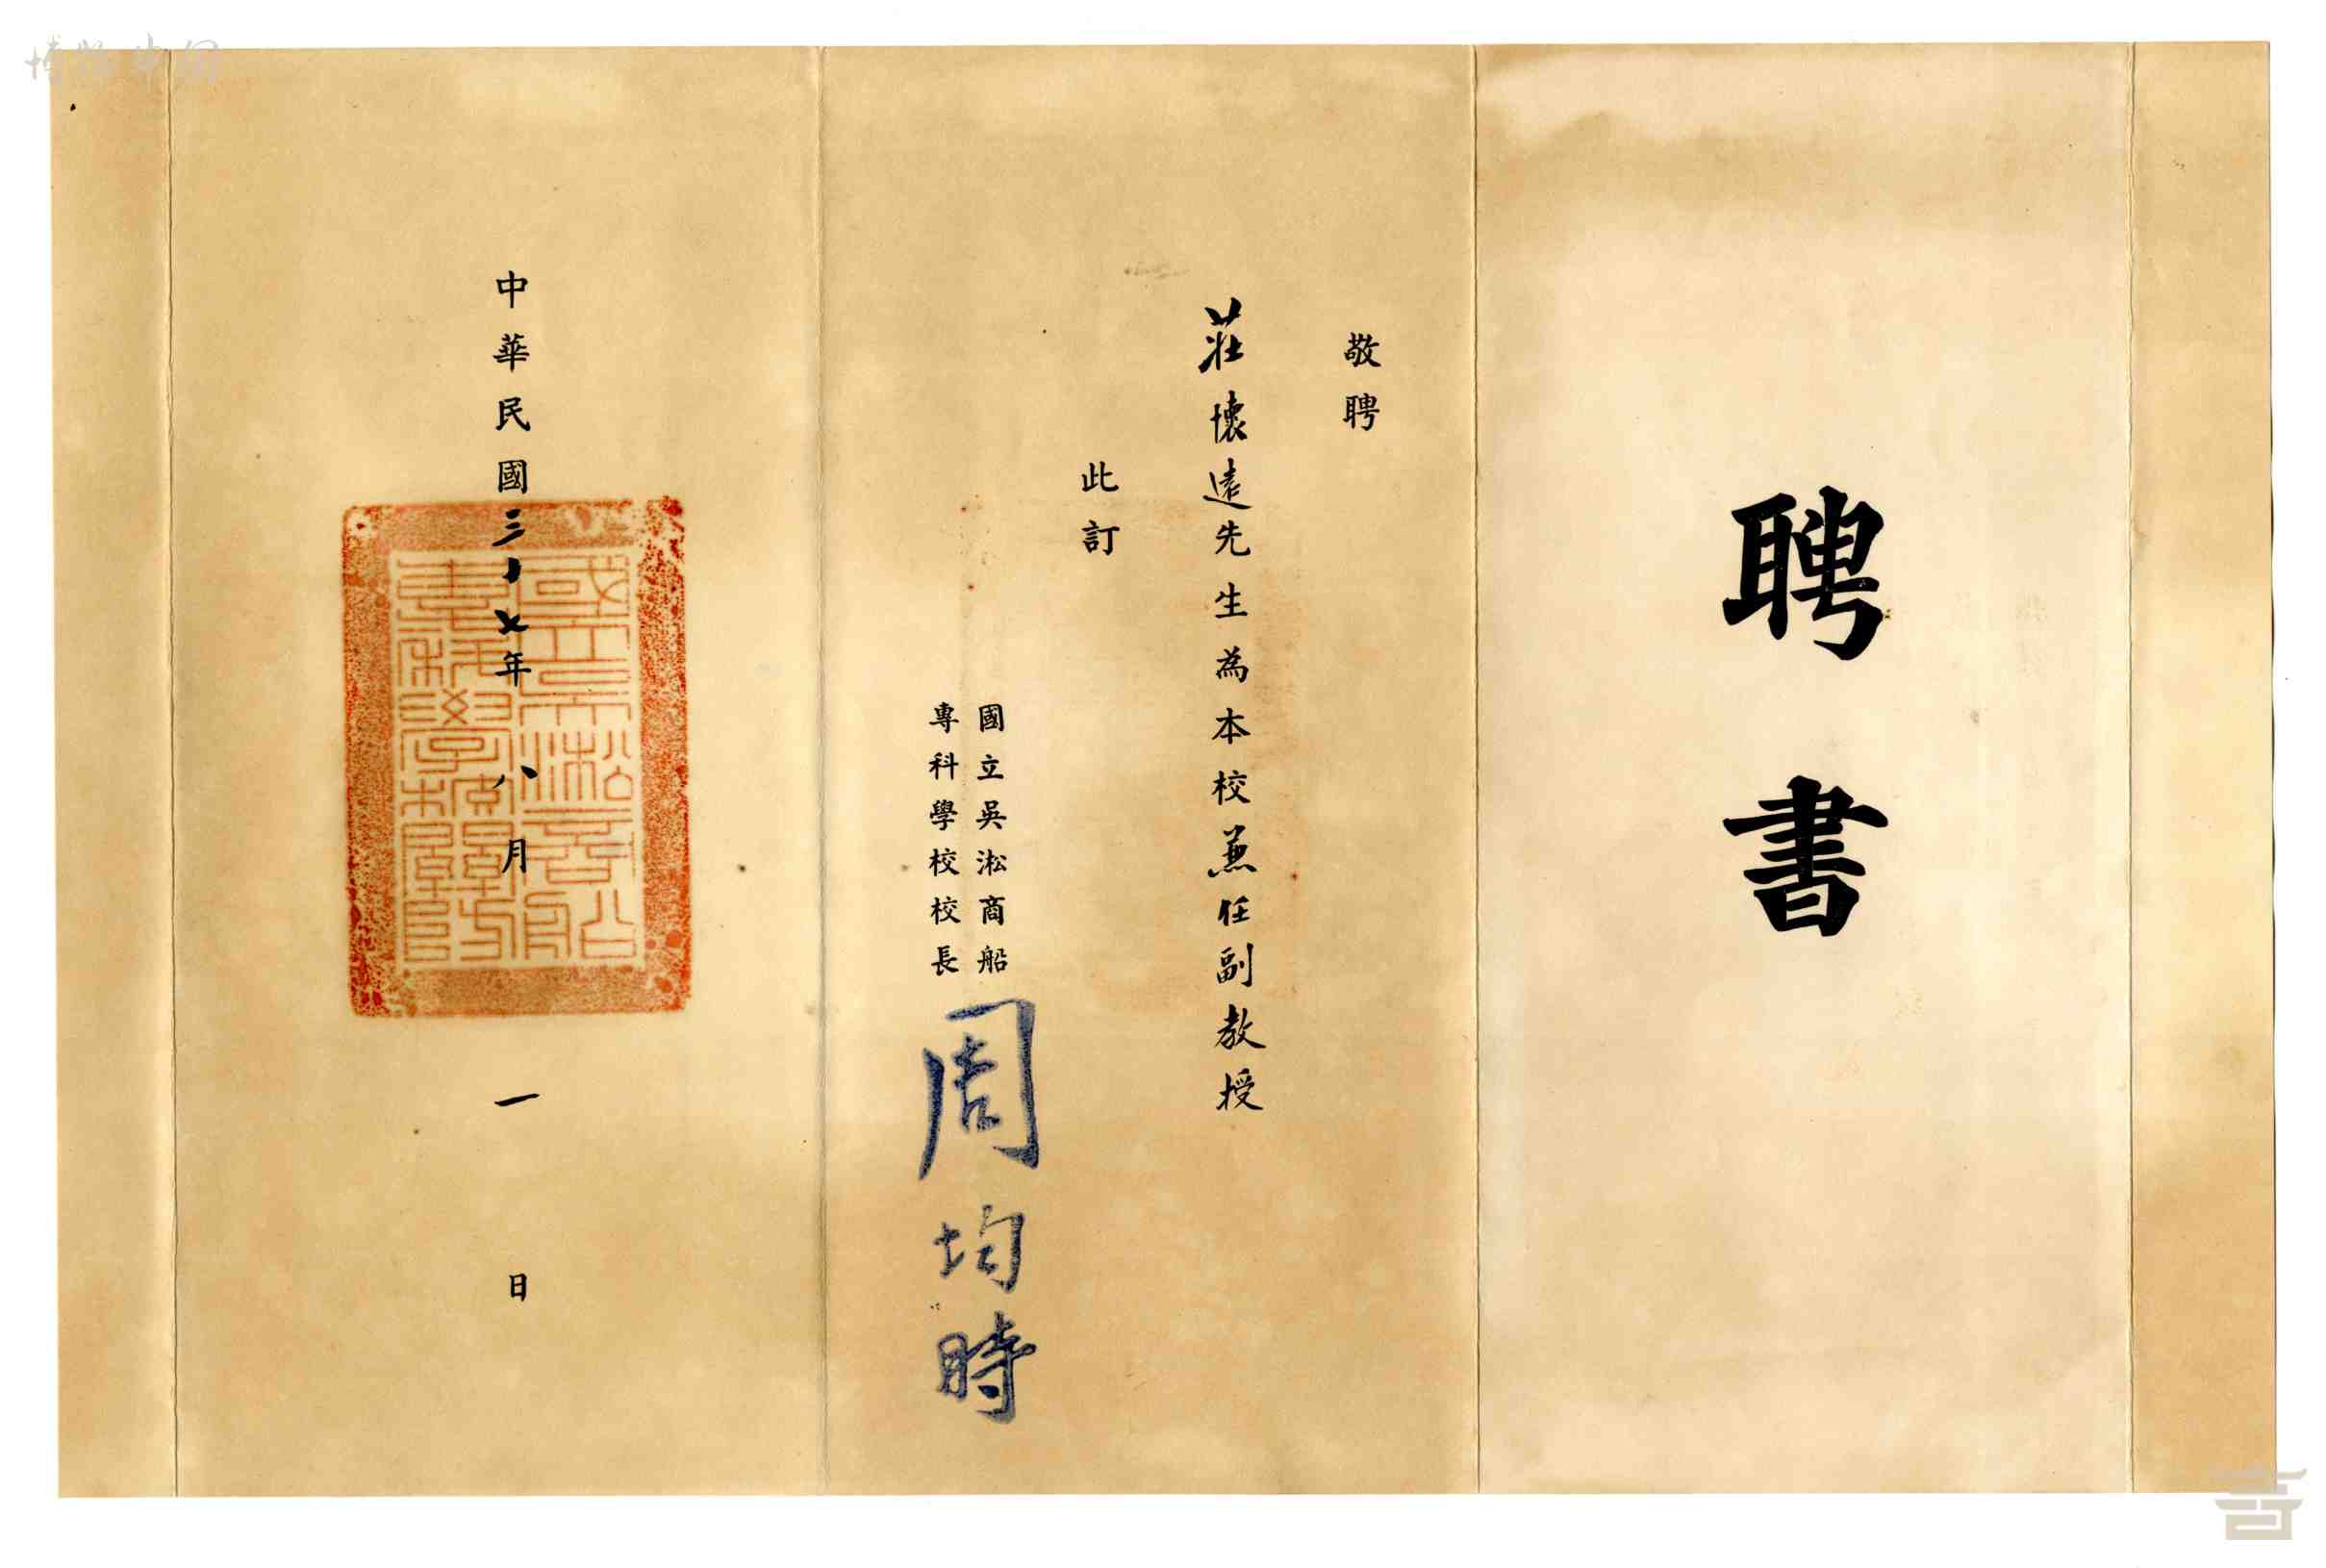 聘書
敬聘
莊懷遠先生為本校兼任副教授
此訂
國立吳淞商船
專科學校校長
周均時
中華民國三十七年八月一日
國立吳淞商船
專科學校關防
博物中国